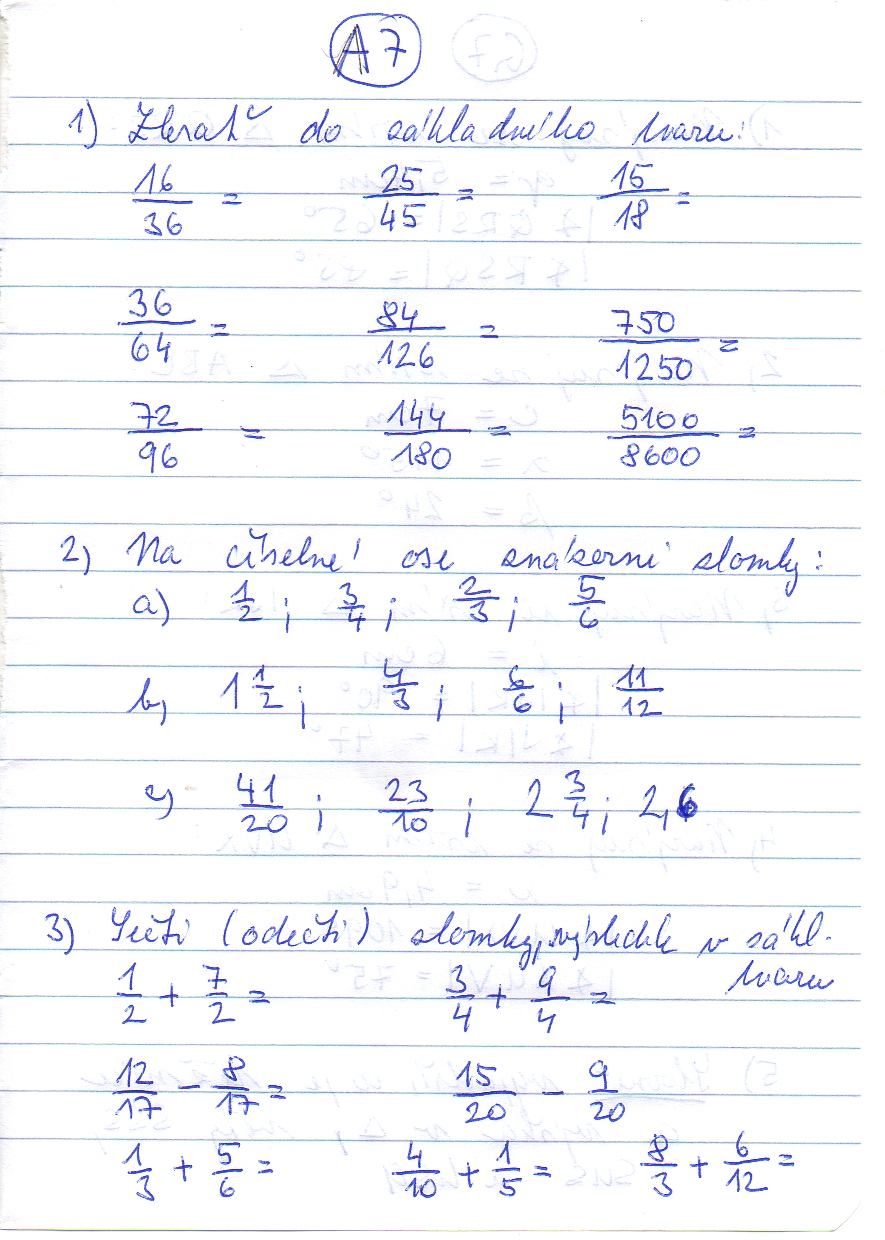 A7
1) Zkrať do základního tvaru:
16/36 = 25/45 = 15/18 =
36/64 = 84/126 = 750/1250 =
72/96 = 144/180 = 5100/8600 =
2) Na číselné ose znázorni zlomky:
a) 1/2 ; 3/4 ; 2/3 ; 5/6
b) 1 1/2 ; 4/3 ; 6/6 ; 11/12
c) 41/20 ; 23/10 ; 2 3/4 ; 2,6
3) Sečti (odečti) zlomky, výsledek v zákl.
tvaru
1/2 + 7/2 = 3/4 + 9/4 =
12/17 - 8/17 = 15/20 - 9/20
1/3 + 5/6 = 4/10 + 1/5 = 8/3 + 6/12 =